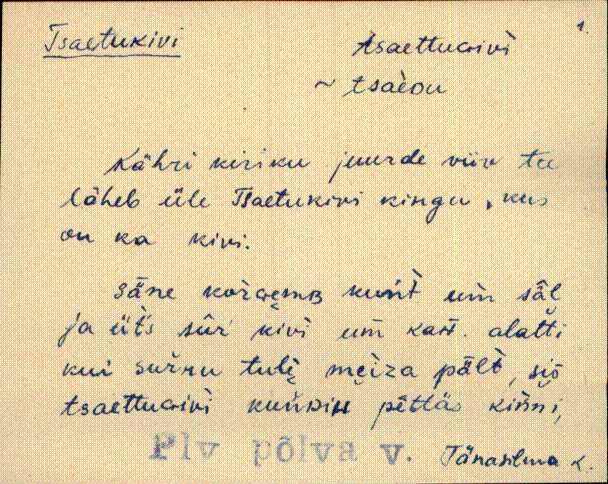 1.
Tsaetukivi tsaettuκivì
~ tsaèou
Kähri kiriku juurde viiv tee
läheb üle Tsaetukivi kingu, kus
on ka kivi.
säne kun̄t um säl
ja üt̀s sūŕ kivì um kah. alatti
kui suŕnu tulè mèiza pält, siš
tsaettuκivi pèttäs kińni,
Plv põlva v. Tänasilma k.